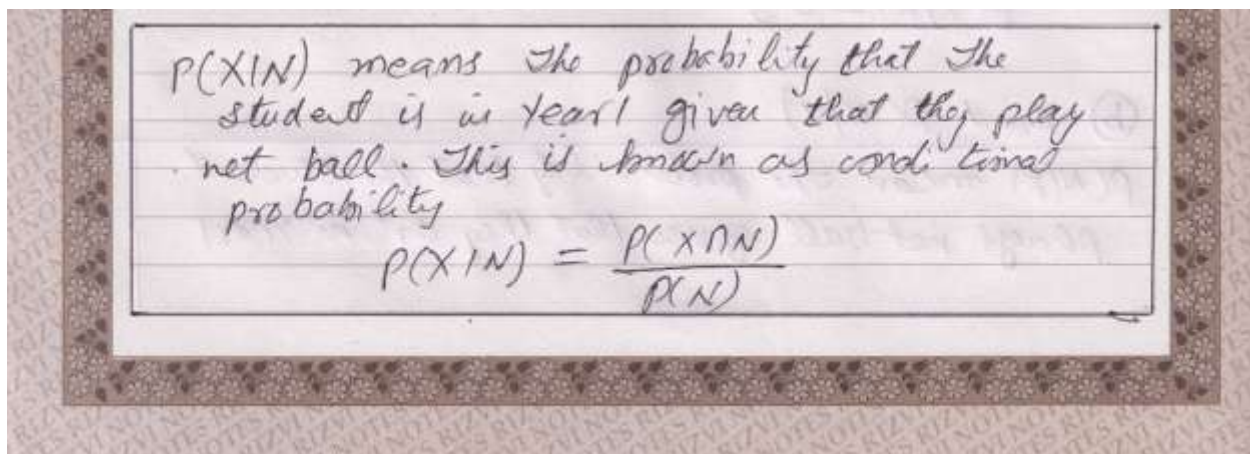 P(X|N) means The probability that The
student is in Year 1 given that they play
net ball. This is known as conditional
probability
P(X|N) = P(X∩N)
P(N)